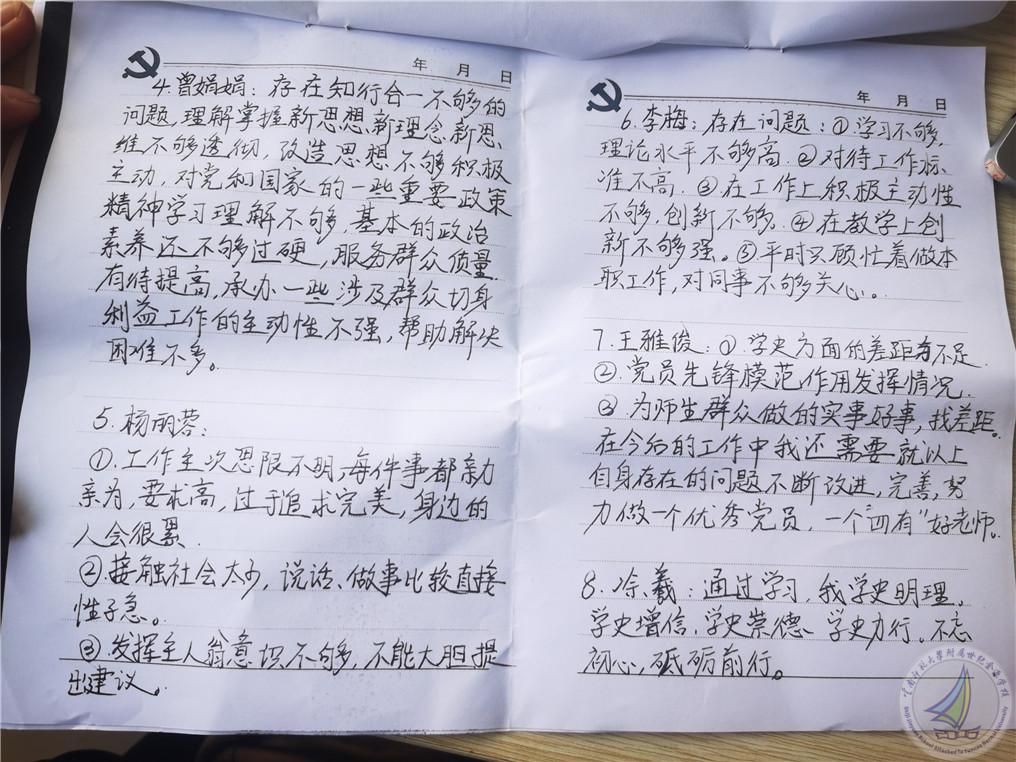 年 月 日
4.曾娟娟：存在知行合一不够的
问题，理解掌握新思想、新理念、新思
维不够透彻，改造思想不够积极
主动，对党和国家的一些重要政策
精神学习理解不够，基本的政治
素养还不够过硬，服务群众质量
有待提高，承办一些涉及群众切身
利益工作的主动性不强，帮助解决
困难不多。
5.杨丽蓉：
①.工作主次思限不明，每件事都亲力
亲为，要求高，过于追求完美，身边的
人会很累.
②.接触社会太少，说话、做事比较直接
性子急。
③.发挥主人翁意识不够，不能大胆提
出建议。
年 月 日
6.李梅：存在问题：①.学习不够，
理论水平不够高.②对待工作标
准不高.③在工作上积极主动性
不够，创新不够.④在教学上创
新不够强。⑤平时只顾忙着做本
职工作，对同事不够关心。
7.王雅俊：①.学史方面的差距与不足.
②.党员先锋模范作用发挥情况.
③.为师生群众做的实事好事，找差距。
在今后的工作中我还需要就以上
自身存在的问题不断改进，完善，努
力做一个优秀党员，一个“四有”好老师。
8.徐羲：通过学习，我学史明理，
学史增信，学史崇德、学史力行。不忘
初心，砥砺前行。
云南师范大学附属世纪金源学校